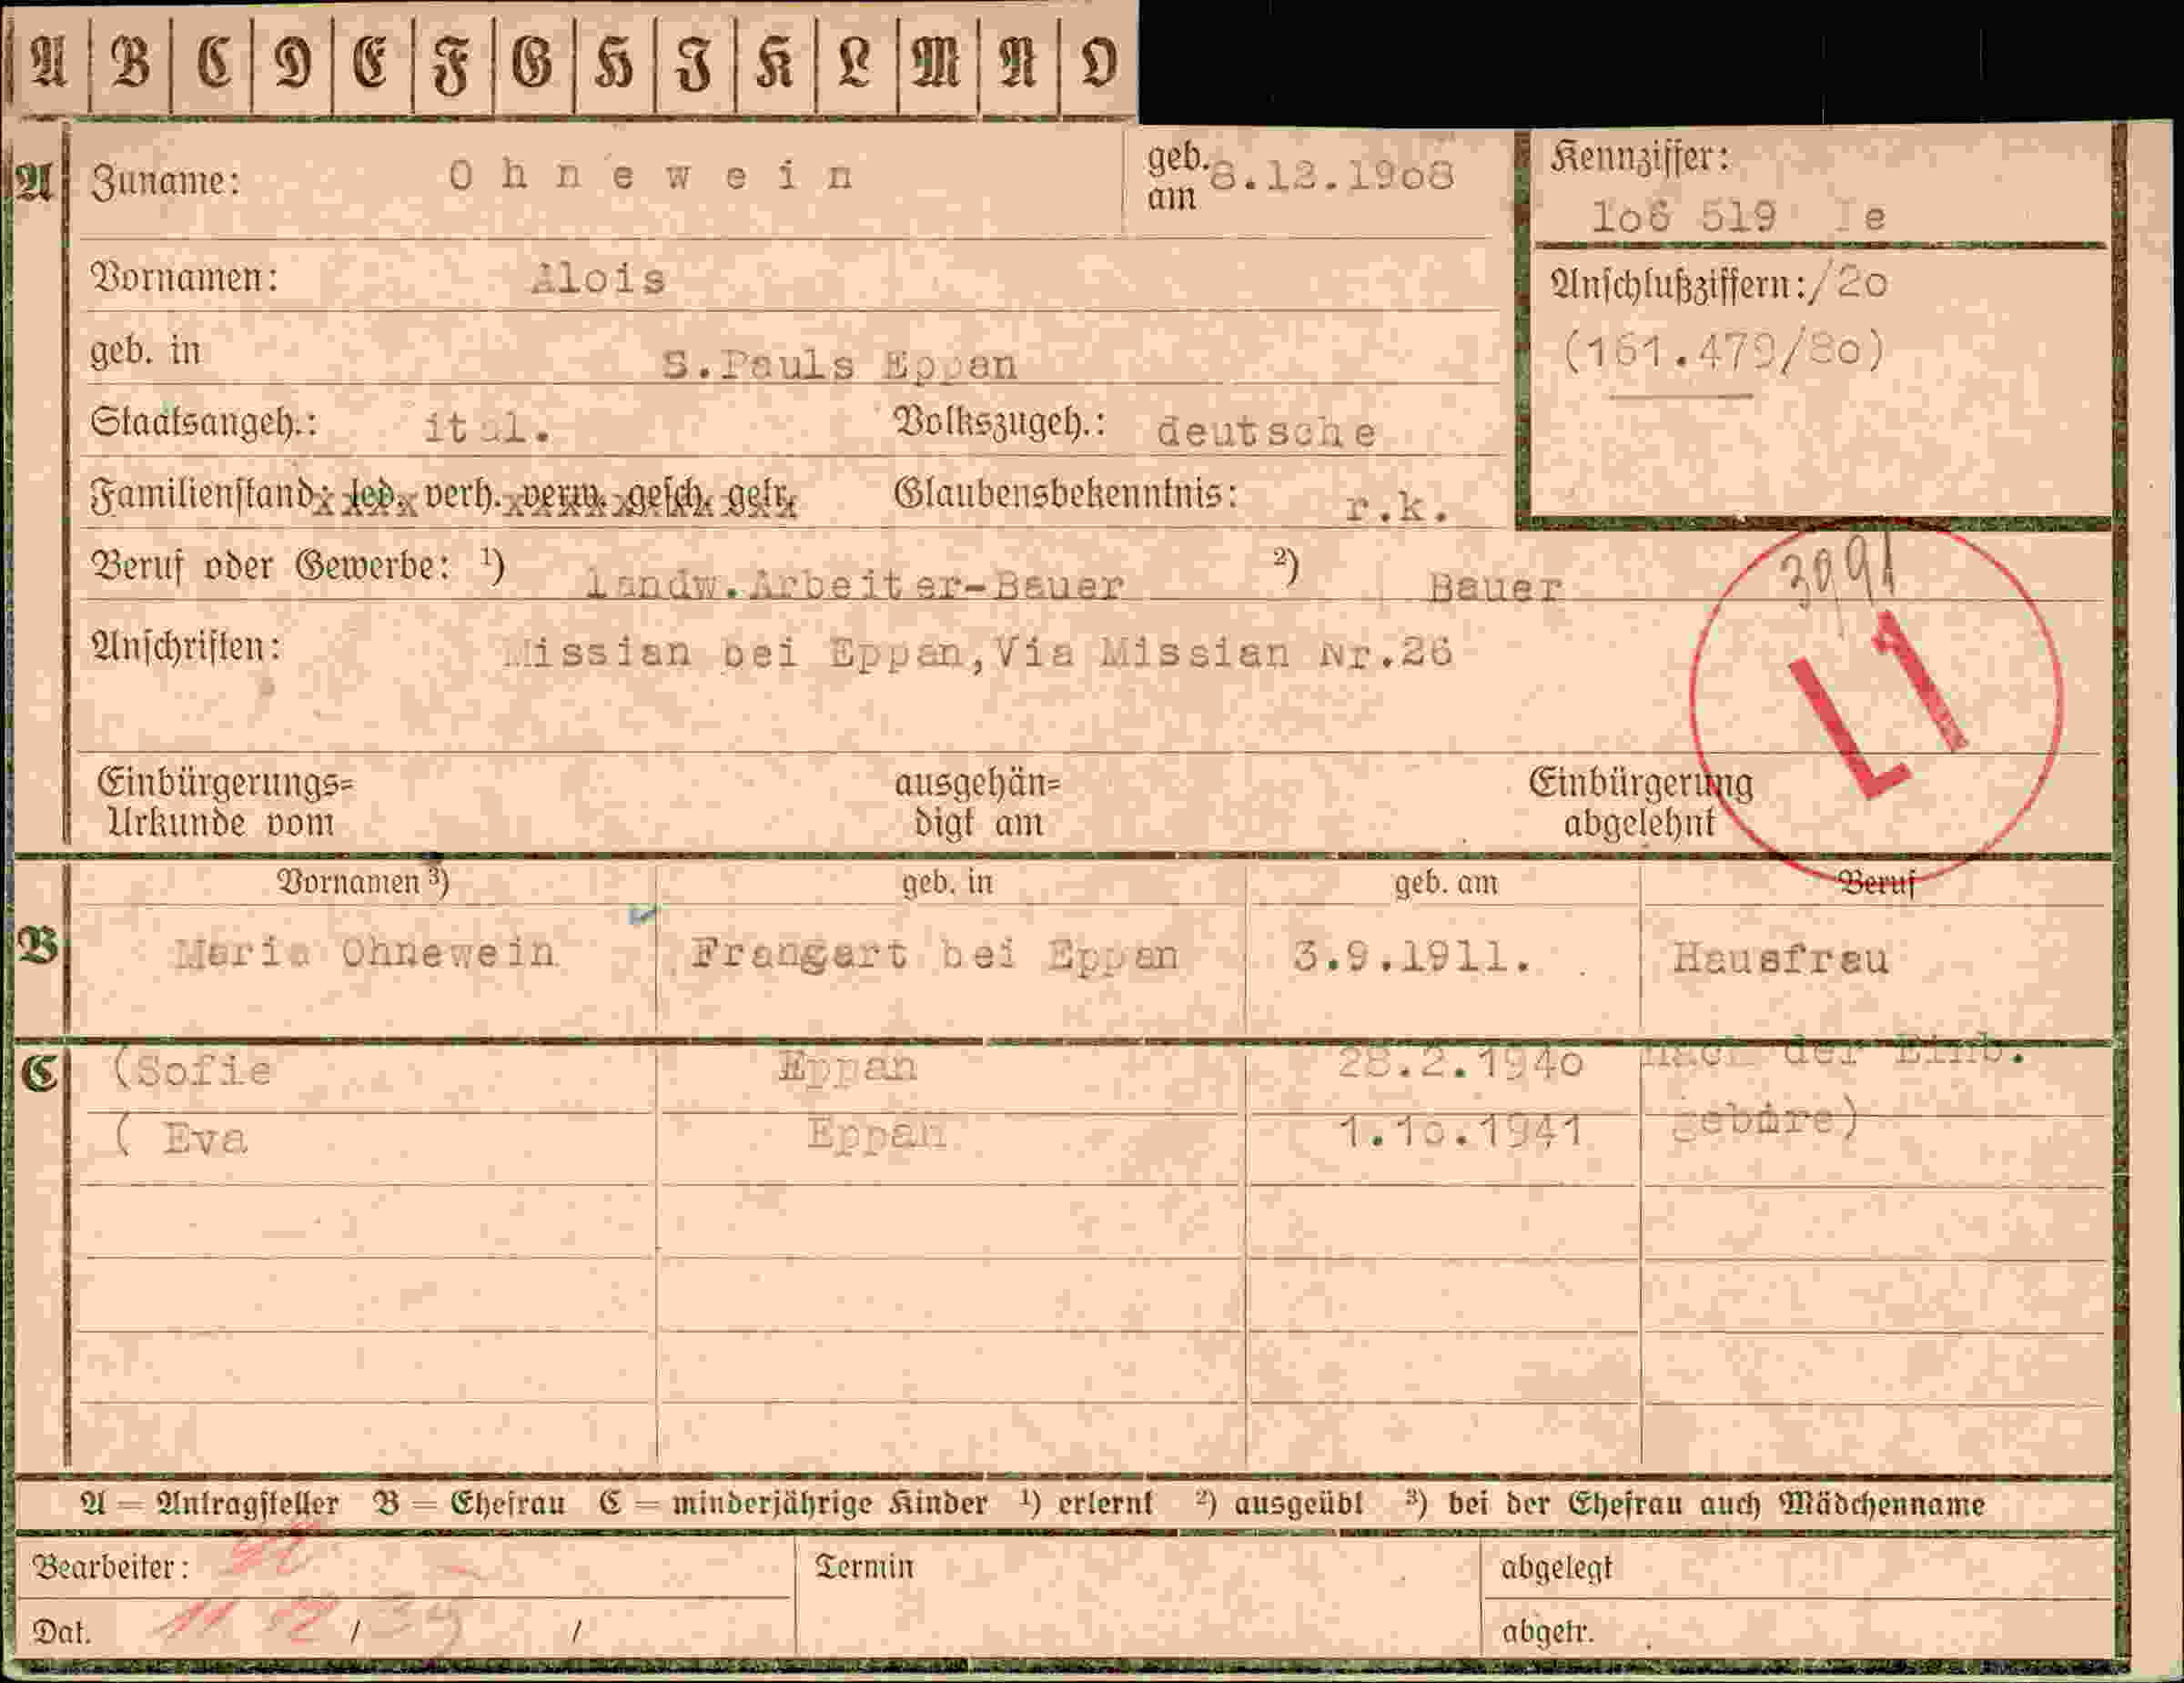 A B C D E F G H I K L M N O
A Zuname: Ohnewein geb. am 8.12.1908 Kennziffer:
1o6 519 Ie
Vornamen: Alois Anschlußziffern: /2o
geb. in S.Pauls Eppan (161.479/8o)
Staatsangeh.: ital. Volkszugeh.: deutsche
Familienstand: led. verh. verw. gesch. getr. Glaubensbekenntnis: r.k.
Beruf oder Gewerbe: ¹) landw.Arbeiter-Bauer ²) Bauer
Anschriften: Missian bei Eppan,Via Missian Nr.26
L1
Einbürgerungs= ausgehän= Einbürgerung
Urkunde vom digt am abgelehnt
Vornamen ³) geb. in geb. am Beruf
B Maria Ohnewein Frangart bei Eppan 3.9.1911. Hausfrau
C (Sofie Eppan 28.2.194o nach der Einb.
( Eva Eppan 1.1o.1941 gebore)
A = Antragsteller B = Ehefrau C = minderjährige Kinder ¹) erlernt ²) ausgeübt ³) bei der Ehefrau auch Mädchenname
Bearbeiter: Termin abgelegt
Dat. 11 12 / 39 / abgetr.